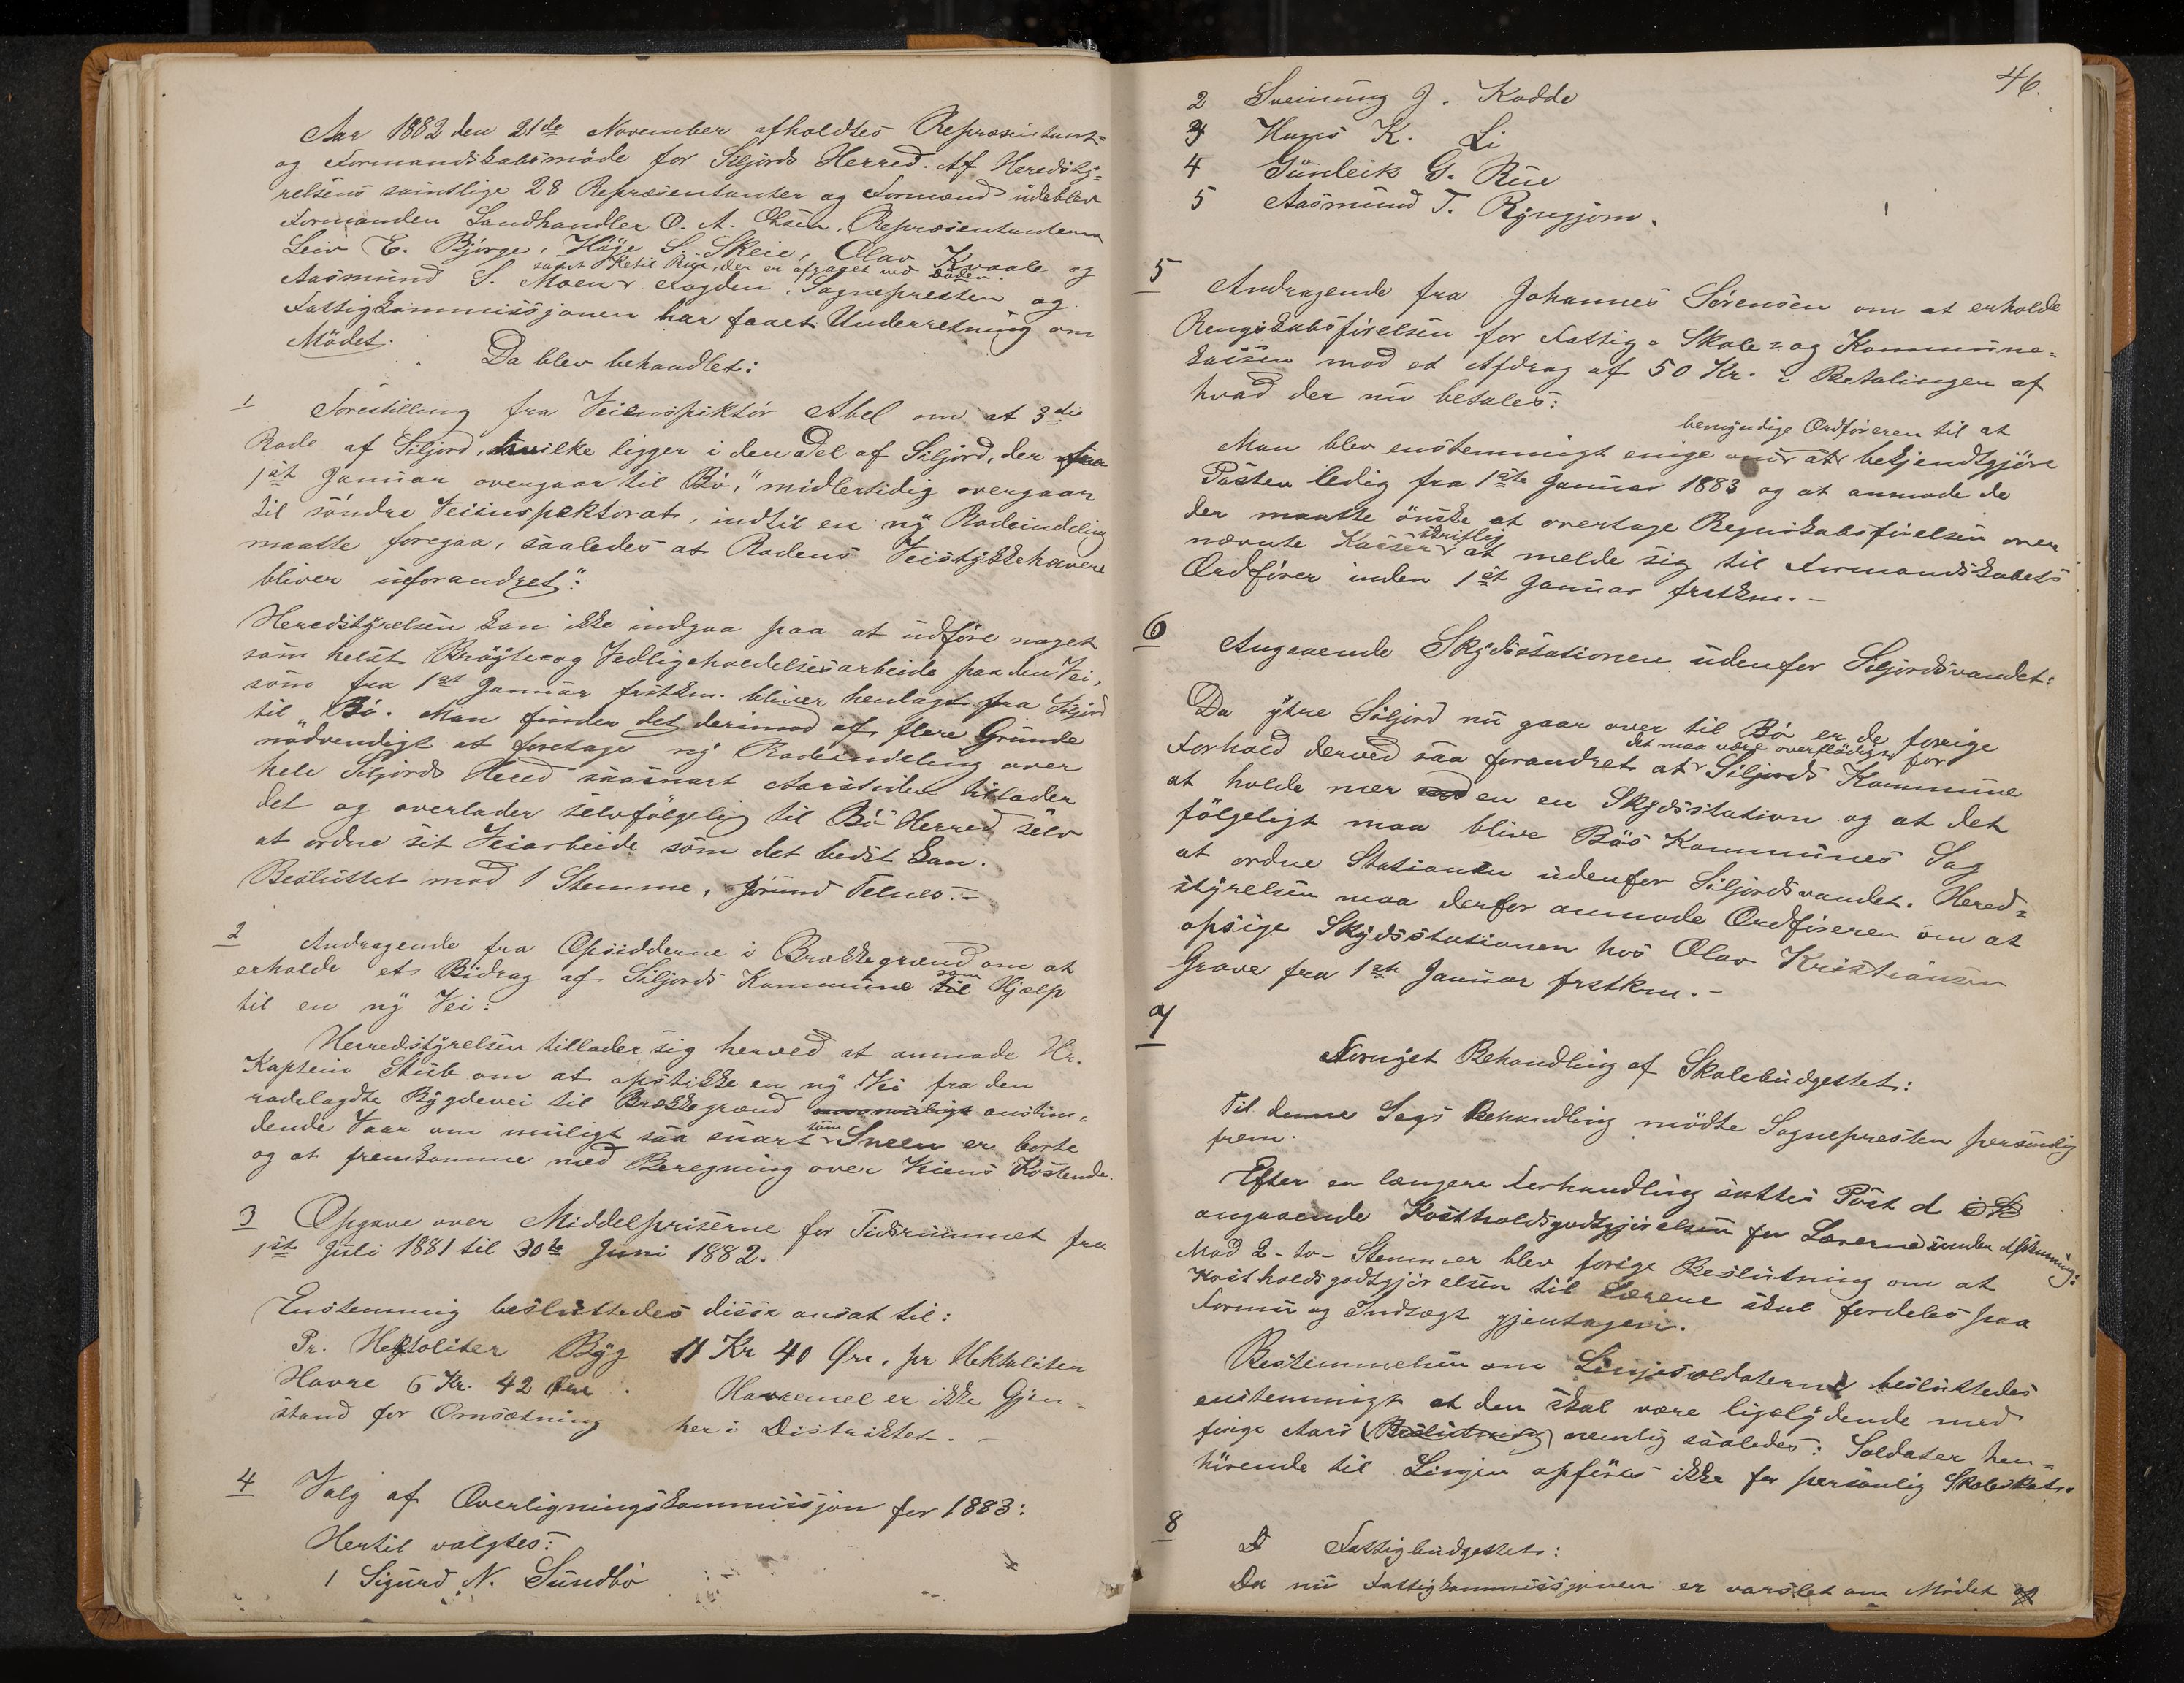 Aar 1882 den 21de November afholdtes Repræsentant-
og Formandskabsmöde for Siljords Herred. Af Heredsty-
relsens samtlige 28 Repræsentanter og Formænd udeblev
Formanden Landhandler O. A. Olsen, Repræsentanterne
Leiv E. Bjørge, Höge S. Skeie, Olav Kvaale og
samt Ketil Rue, der er afgaaet ved Døden.
Aasmund S. Moen. Fogden, Sognepresten og
Fattigkommissjonen har faaet Underretning om
Mödet.
Da blev behandlet:
1 Forestilling fra Veiinspektør Abel om at 3die
Rode af Siljord, hvilke ligger i den Del af Siljord, der fra
1st Januar overgaar til Bø, "midlertidig overgaar
til söndre Veiinspektorat, indtil en ny Rodeindeling
maatte foregaa, saaledes at Rodens Veistykkehavere
bliver uforandret":
Heredstyrelsen kan ikke indgaa paa at udföre noget
som helst Bröyte- og Vedligeholdelsesarbeide paa den Vei,
som fra 1st Januar frstkm. bliver henlagt fra Siljord
til Bö. Man finder det derimod af flere Grunde
nödvendigt at foretage ny Rodeindeling over
hele Siljords Hered saasnart Aarstiden tillader
det og overlader selvfölgelig til Bö Herred selv
at ordne sit Veiarbeide som det bedst kan.
Besluttet mod 1 Stemme, Jörund Telnes.-
2 Andragende fra Opsidderne i Brækkegrænd om at
erholde et Bidrag af Siljords Kommune til som Hjælp
til en ny Vei:
Herredstyrelsen tillader sig herved at anmode Hr.
Kaptein Stub om at opstikke en ny Vei fra den
rodelagdte Bygdevei til Brækkegrænd anstun-
dende Vaar om muligt saa snart som Sneen er borte
og at fremkomme med Beregning over Veiens Kostende.
3 Opgave over Middelpriserne for Tidsrummet fra
1st Juli 1881 til 30te Juni 1882.
Enstemmig besluttedes disse ansat til:
Pr. Hektoliter Byg 11 Kr 40 Øre, pr Hektoliter
Havre 6 Kr. 42 Øre. Havremel er ikke Gjen-
stand for Omsætning her i Distriktet. -
4 Valg af Overligningskommissjon for 1883:
Hertil valgtes:
1 Sigurd N. Sundbö
46.
2 Sveinung J. Kodde
3 Hans K. Li
4 Gunleik G. Rue
5 Aasmund T. Rynejom.
5 Andragende fra Johannes Sörensen om at erholde
Rengskabsförelsen for Fattig- Skole- og Kommune-
kassen mod et Afdrag af 50 Kr. i Betalingen af
hvad der nu betales:
bemyndige Ordföreren til at
Man blev enstemmigt enige om at bekjendtgjöre
Posten ledig fra 1ste Januar 1883 og at anmode de
der maatte önske at overtage Regnskabsförelsen over
nævnte Kasser skriftlig at melde sig til Formandskabets
Ordförer inden 1st Januar frstkm. -
6 Angaaende Skydsstationen udenfor Siljordsvandet:
Da ytre Siljord nu gaar over til Bö er de forige
Forhold derved saa forandret at det maa være overflödigt for Siljords Kommune
at holde mer en en Skydsstation og at det
fölgeligt maa blive Bös Kommunes Sag
at ordne Stationen udenfor Siljordsvandet. Hered-
styrelsen maa derfor anmode Ordföreren om at
opsige Skydsstationen hos Olav Kristiansen
Grave fra 1st Januar frstkm. -
7
Fornyet Behandling af Skolebudgettet:
Til denne Sags Behandling mödte Sognepresten personlig
frem.
Efter en længere Forhandling sattes Post d
angaaende Kostholdsgodtgjörelsen for Lærerne under Afstemning:
Mod 2 - to - Stemmer blev forige Beslutning om at
Kostholdsgodtgjörelsen til Lærerne skal fordeles paa
Formu og Indtægt gjentagen.
Bestemmelsen om Linjesoldaterne besluttedes
enstemmigt at den skal være ligelydende med
forige Aars (Beslutning) nemlig saaledes: Soldater hen-
hörende til Linjen opföres ikke for personlig Skoleskat.
8 Fattigbudgettet:
Da nu Fattigkommissjonen er varslet om Mödet